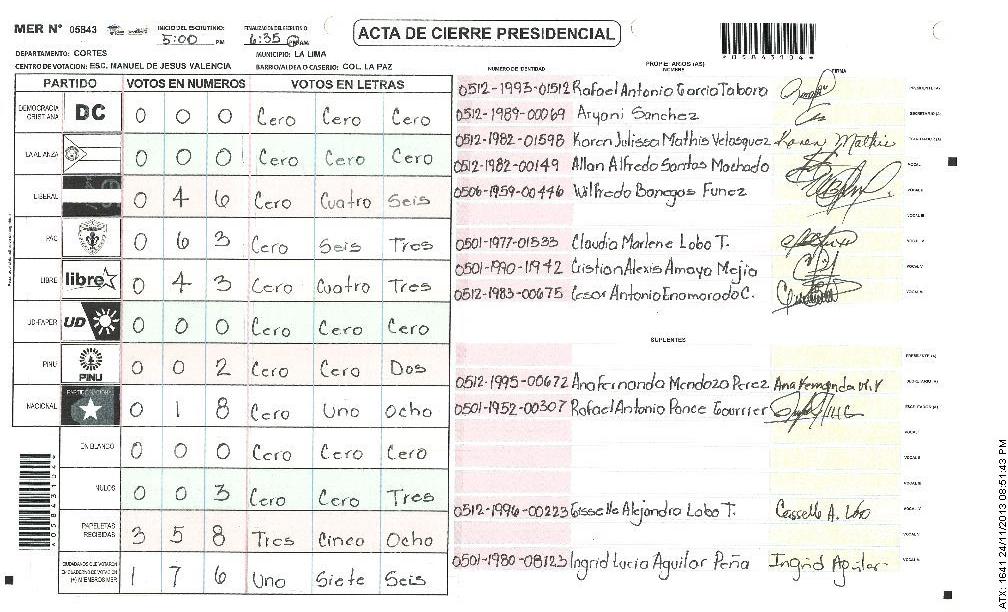 MER N° 05843 INICIO DEL ESCRUTINIO: 5:00 PM FINALIZACION DEL ESCRUTINIO: 6:35 PM
ACTA DE CIERRE PRESIDENCIAL
*05843104*
DEPARTAMENTO: CORTES MUNICIPIO: LA LIMA
CENTRO DE VOTACION: ESC. MANUEL DE JESUS VALENCIA BARRIO/ALDEA O CASERIO: COL. LA PAZ
PARTIDO VOTOS EN NUMEROS VOTOS EN LETRAS
DEMOCRACIA CRISTIANA DC 0 0 0 Cero Cero Cero
LA ALIANZA 0 0 0 Cero Cero Cero
LIBERAL 0 4 6 Cero Cuatro Seis
PAC 0 6 3 Cero Seis Tres
LIBRE libre 0 4 3 Cero Cuatro Tres
UD-FAPER UD 0 0 0 Cero Cero Cero
PINU PINU 0 0 2 Cero Cero Dos
NACIONAL 0 1 8 Cero Uno Ocho
EN BLANCO 0 0 0 Cero Cero Cero
NULOS 0 0 3 Cero Cero Tres
PAPELETAS RECIBIDAS 3 5 8 Tres Cinco Ocho
CIUDADANOS QUE VOTARON EN CUADERNO DE VOTACION (+) MIEMBROS MER 1 7 6 Uno Siete Seis
*05843104*
NUMERO DE IDENTIDAD PROPIETARIOS (AS) NOMBRE FIRMA
0512-1993-01512 Rafael Antonio Garcia Tabora PRESIDENTE (A)
0512-1989-00069 Aryani Sanchez SECRETARIO (A)
0512-1982-01598 Karen Julissa Mathis Velasquez Karen Mathis
0512-1982-00149 Allan Alfredo Santos Machado VOCAL I
0506-1959-00446 Wilfredo Banegas Funez VOCAL II
VOCAL III
0501-1977-01533 Claudia Marlene Lobo T. VOCAL IV
0501-1990-11942 Cristian Alexis Amaya Mejia VOCAL V
0512-1983-00675 Cesar Antonio Enamorado C. VOCAL VI
SUPLENTES
PRESIDENTE (A)
0512-1995-00672 Ana Fernanda Mendoza Perez Ana Fernanda M.P SECRETARIO (A)
0501-1952-00307 Rafael Antonio Ponce Gourrier ESCRUTADOR (A)
VOCAL I
VOCAL II
VOCAL III
0512-1996-00223 Gisselle Alejandra Lobo T. VOCAL IV
VOCAL V
0501-1980-08123 Ingrid Lucia Aguilar Peña Ingrid Aguilar VOCAL VI
ATX: 1641 24/11/2013 08:51:43 PM